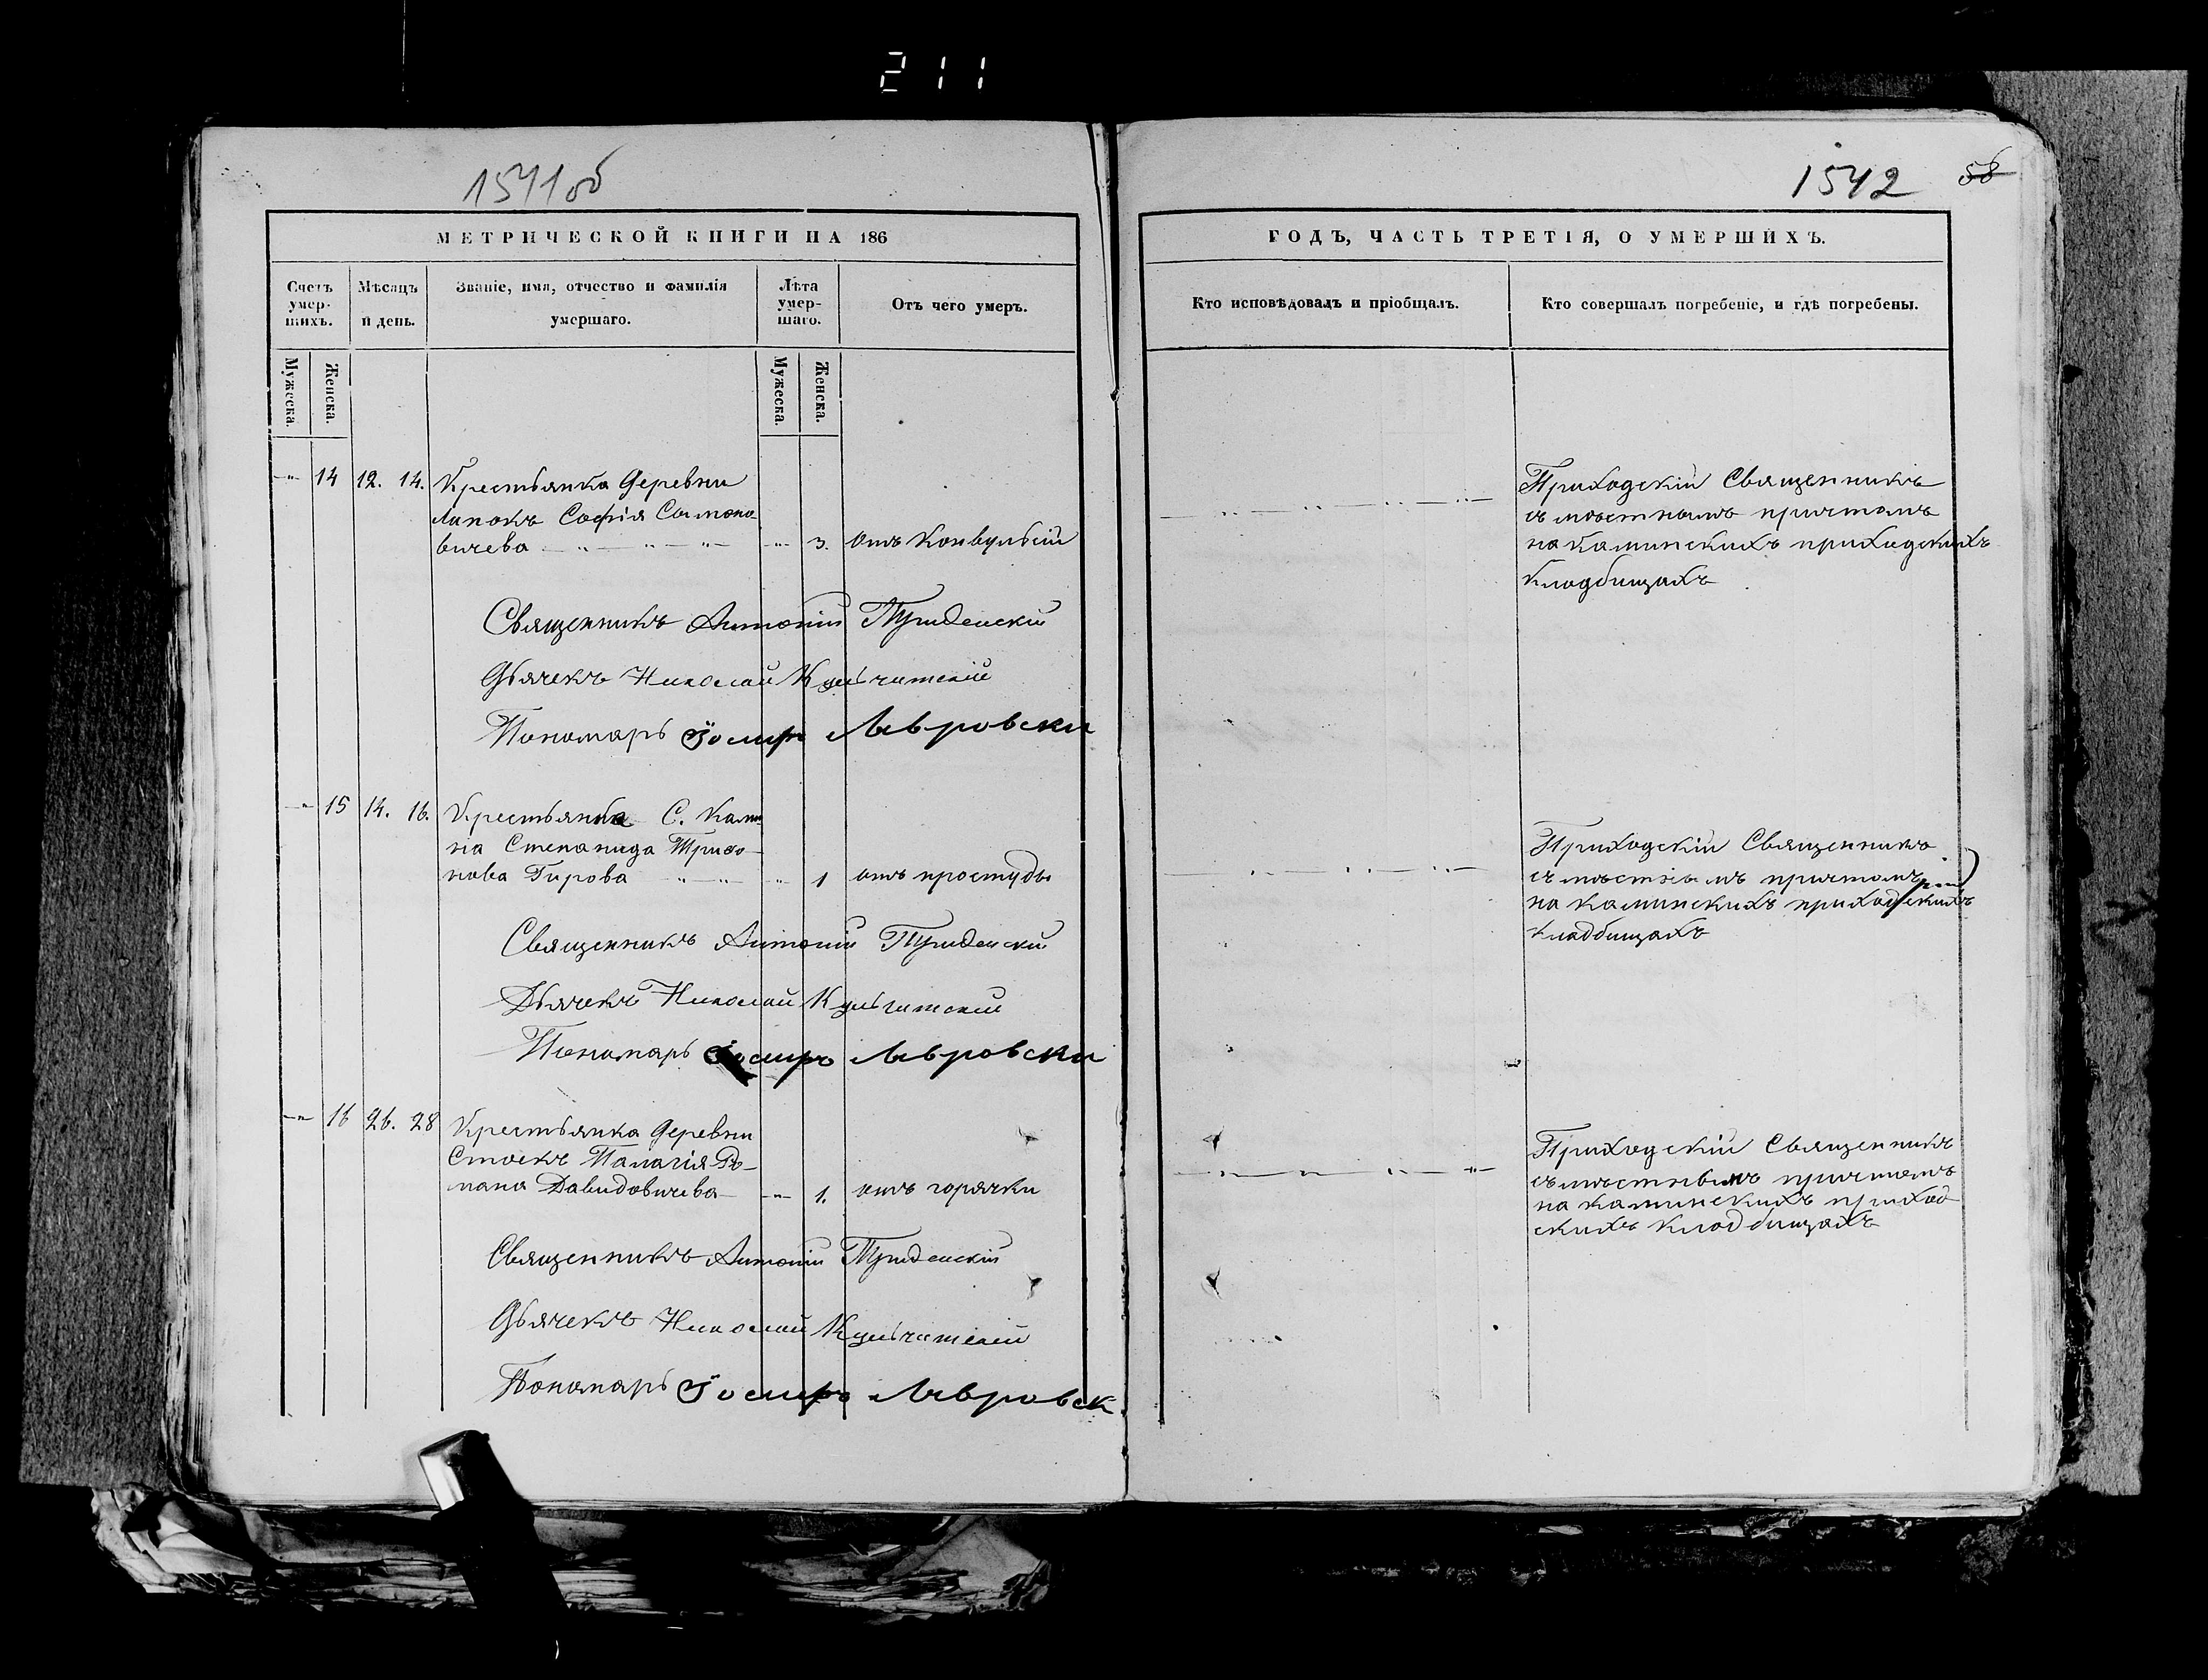 211
1541об
МЕТРИЧЕСКОЙ КНИГИ НА 186
Счетъ умер- шихъ.
Мѣсяцъ и день.
Званіе, имя, отчество и фамилія умершаго.
Лѣта умер- шаго.
Отъ чего умеръ.
Мужеска.
Женска.
Мужеска.
Женска.
14 12. 14. Крестьянка деревни
Софія Симоно-
вичева 3. отъ конвульсій
Священникъ Антоній
Дьячекъ Николай Кульчитскій
Пономарь Іосифъ Лавровски
15 14. 16. Крестьянка С. Ками-
на Степанида Трифо-
нова Гирова 1 отъ простуды
Священникъ Антоній
Дьячекъ Николай Кульчитскій
Пономарь Іосифъ Лавровски
16 26. 28 Крестьянка деревни
Стоекъ Палагія Ро-
мана Давидовичева 1. отъ горячки
Священникъ Антоній
Дьячекъ Николай Кульчитскій
Пономарь Іосифъ Лавровск
1542 58
ГОДЪ, ЧАСТЬ ТРЕТІЯ, О УМЕРШИХЪ.
Кто исповѣдовалъ и пріобщалъ.
Кто совершалъ погребеніе, и гдѣ погребены.
Приходскій Священникъ
съ мѣстнымъ причтомъ
на каминскихъ приходскихъ
кладбищахъ
Приходскій Священникъ
съ мѣстнымъ причтомъ
на каминскихъ приходскихъ
кладбищахъ
Приходскій Священникъ
съ мѣстнымъ причтомъ
на каминскихъ приход
скихъ кладбищахъ